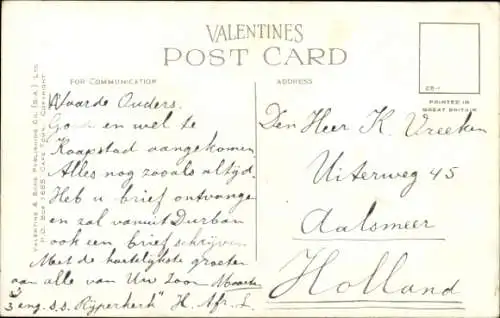 VALENTINES
POST CARD
FOR COMMUNICATION
ADDRESS
28-1
PRINTED IN
GREAT BRITAIN
VALENTINE & SONS PUBLISHING CO. (S.A.) LTD.
P.O. BOX 1685 CAPE TOWN. COPYRIGHT
Waarde Ouders.
Goed en wel te
Kaapstad aangekomen
Alles nog zooals altijd.
Heb u brief ontvangen
en zal vanuit Durban
ook een brief schrijven
Met de hartelijkste groeten
aan alle van Uw Zoon Maarten
3 eng. s.s. "Rijperkerk" H. Afr. L.
Den Heer K. Vreeken
Uiterweg 45
Aalsmeer
Holland